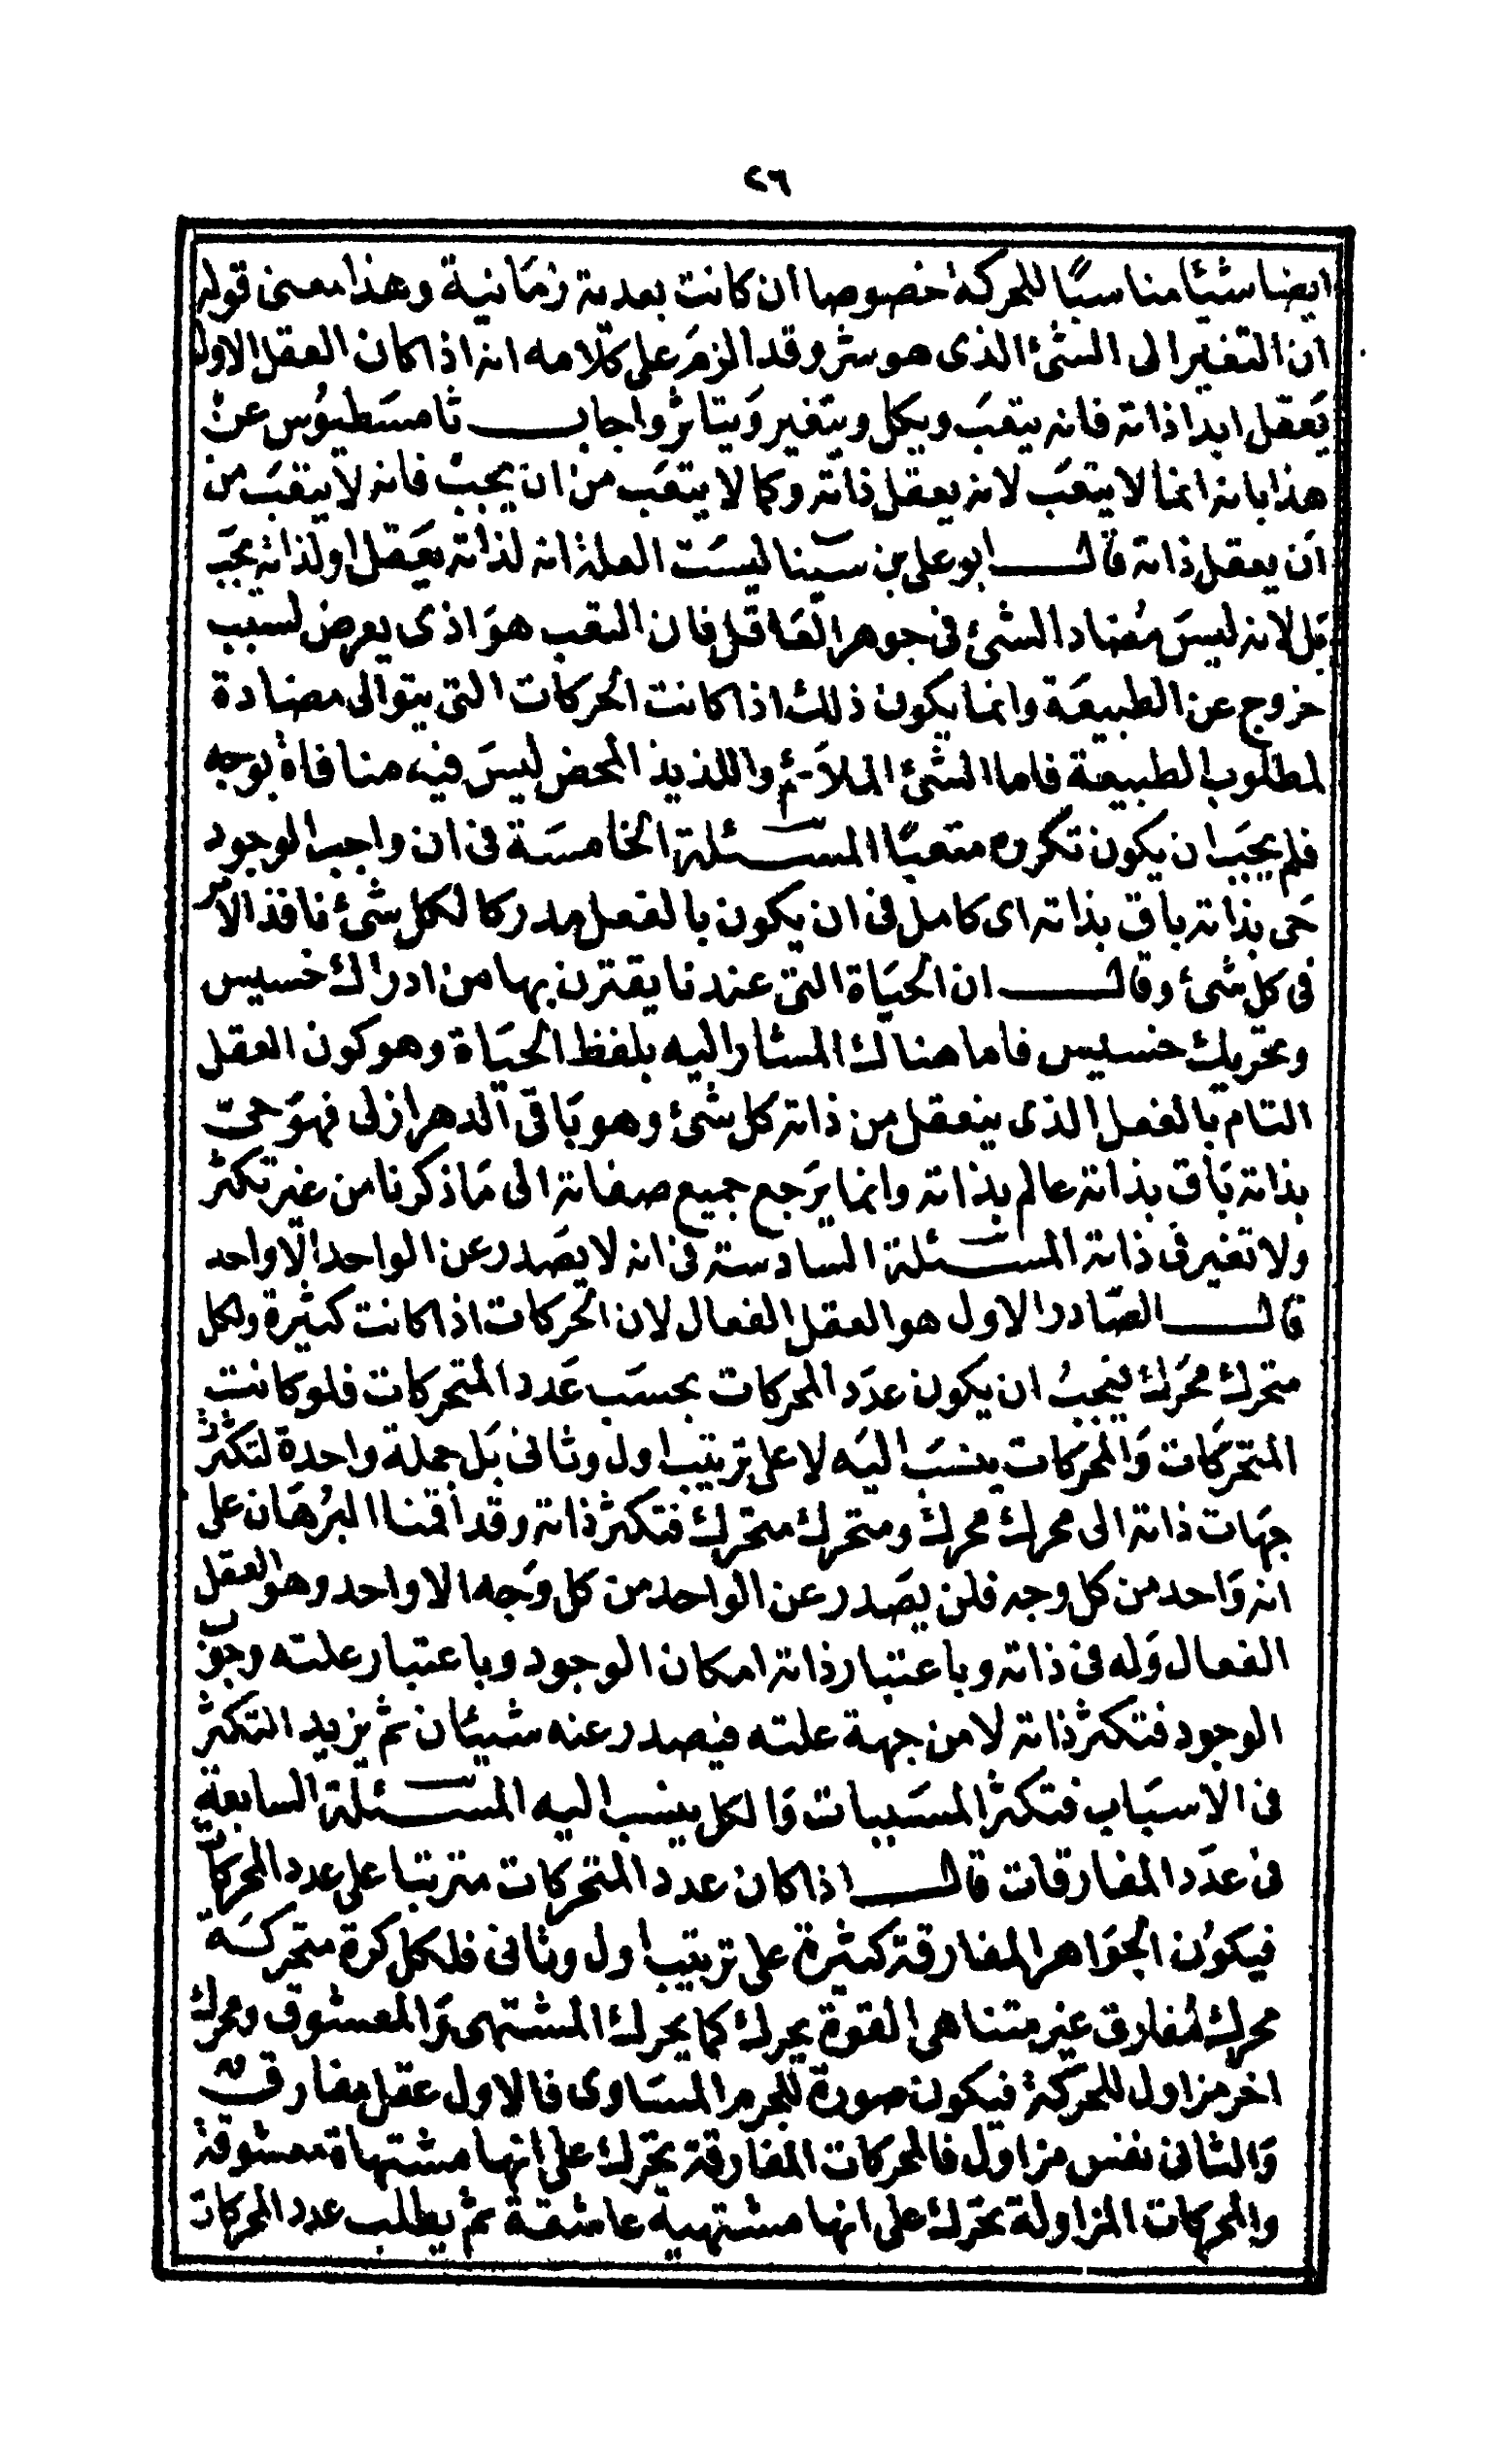 ٢٦
ايضا شيئا مناسبًا للحركة خصوصا ان كانت بعدية زمَانية وهذا معنى قوله
ان التغير الى الشئ الذى هو شر وقد الزمَ على كلامه انه اذا كان العقل الاول
يَعقل ابدا ذاته فانه يتعَب ويكل ويتغير وَيتاثر واجاب ثامسَطيُوس عن
هذا بانه انما لا يتعَب لانه يعقل ذاته وكما لا يتعَب من ان يحبّ فانه لا يتعَب من
ان يعقل ذاته قال ابو على بن سينا ليسَت العلة انه لذاته يعَقل او لذاته يحبَ
بَل لانه ليسَ مُضاد الشئ فى جوهر العَاقل فان التعب هوَ اذى يعرض لسبب
خروج عن الطبيعَة وانما يكون ذلك اذا كانت الحركات التى يتوالى مضادة
لمطلوب الطبيعة فاما الشئ الملائم واللذيذ المحض ليسَ فيه منافاة بوجه
فلم يجَب ان يكون تكرره متعبًا المسئلة الخامسَة فى ان واجب الوجود
حَى بذاته باق بذاته اى كامل فى ان يكون بالفعل مدركا لكل شئ نافذ الامر
فى كل شئ وقال ان الحيَاة التى عندنا يقترن بها من ادراك خسيس
وتحريك خسيس فاما هناك المشار اليه بلفظ الحيَاة وهو كون العقل
التام بالفعل الذى ينعقل من ذاته كل شئ وهو بَاقى الدهر ازلى فهوَ حى
بذاته بَاق بذاته عالم بذاته وانما يرَجع جميع صفاته الى مَا ذكرنا من غير تكثر
ولا تغير فى ذاته المسئلة السادسة فى انه لا يصَدر عن الواحد الا واحد
قال الصَادر الاول هو العقل الفعال لان الحركات اذا كانت كثيرة ولكل
متحرك محرَك فيجبُ ان يكون عدَد المحركات بحسَب عَدد المتحركات فلو كانت
المتحرَكات وَالمحركات ينسَب اليَه لا على ترتيب اول وثانى بَل جملة واحدة لتكثرت
جهَات ذاته الى محرك محرك ومتحرك متحرك فتكثر ذاته وقد اقمنا البرُهَان على
انه وَاحد من كل وجه فلن يصَدر عن الواحد من كل وَجه الا واحد وهو العقل
الفعال وَله فى ذاته وباعتبار ذاته امكان الوجود وباعتبار علته وجوب
الوجود فتكثر ذاته لا من جهة علته فيصدر عنه شيئان ثم يزيد التكثر
فى الاسبَاب فتكثر المسَببات وَالكل ينسب اليه المسئلة السابعة
فى عدَد المفارقات قال اذا كان عدد المتحركات مترتبا على عدد المحركات
فيكوُن الجوَاهر المفارقة كثيرة على ترتيب اول وثانى فلكل كرة متحركَة
محرك مُفارق غير متناهى القوة يحرك كما يحرك المشتهى وَالمعشوق ومحرك
اخر مزاول للحرَكة فيكون صورة للجرم السَماوى فالاول عقل مفارق
وَالثانى نفس مزاول فالمحركات المفارقة تحرَك على انها مشتهاة معشوقة
والمحركات المزاولة تحرَك على انها مشتهية عاشقة ثم يطلب عدد المحركات